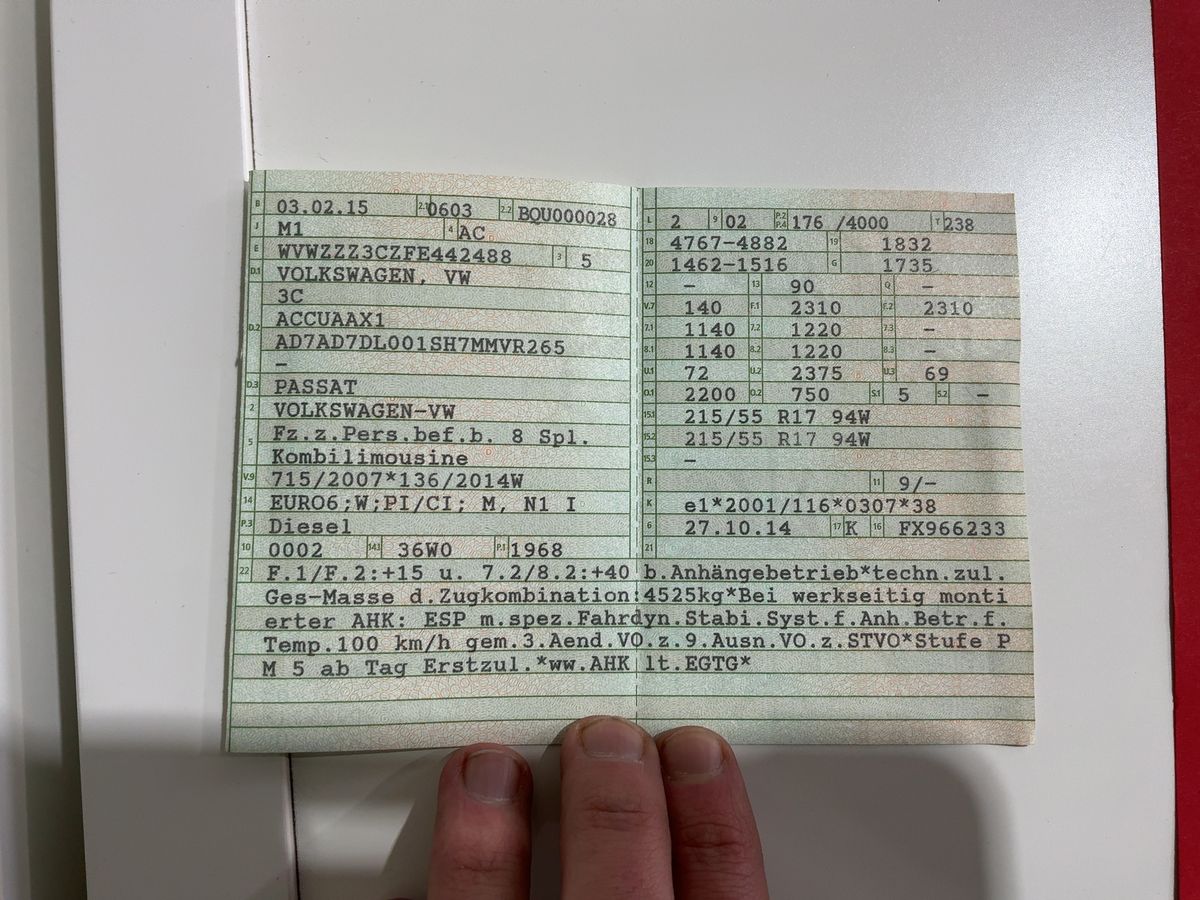 B 03.02.15 2.1 0603 2.2 BQU000028
J M1 4 AC
E WVWZZZ3CZFE442488 3 5
D.1 VOLKSWAGEN, VW
3C
D.2 ACCUAAX1
AD7AD7DL001SH7MMVR265
–
D.3 PASSAT
2 VOLKSWAGEN-VW
5 Fz.z.Pers.bef.b. 8 Spl.
Kombilimousine
V.9 715/2007*136/2014W
14 EURO6;W;PI/CI; M, N1 I
P.3 Diesel
10 0002 14.1 36W0 P.1 1968
L 2 9 02 P.2 P.4 176 /4000 T 238
18 4767-4882 19 1832
20 1462-1516 G 1735
12 – 13 90 Q –
V.7 140 F.1 2310 F.2 2310
7.1 1140 7.2 1220 7.3 –
8.1 1140 8.2 1220 8.3 –
U.1 72 U.2 2375 U.3 69
O.1 2200 O.2 750 S.1 5 S.2 –
15.1 215/55 R17 94W
15.2 215/55 R17 94W
15.3 –
R 11 9/-
K e1*2001/116*0307*38
6 27.10.14 17 K 16 FX966233
21
22 F.1/F.2:+15 u. 7.2/8.2:+40 b.Anhängebetrieb*techn.zul.
Ges-Masse d.Zugkombination:4525kg*Bei werkseitig monti
erter AHK: ESP m.spez.Fahrdyn.Stabi.Syst.f.Anh.Betr.f.
Temp.100 km/h gem.3.Aend.VO.z.9.Ausn.VO.z.STVO*Stufe P
M 5 ab Tag Erstzul.*ww.AHK lt.EGTG*